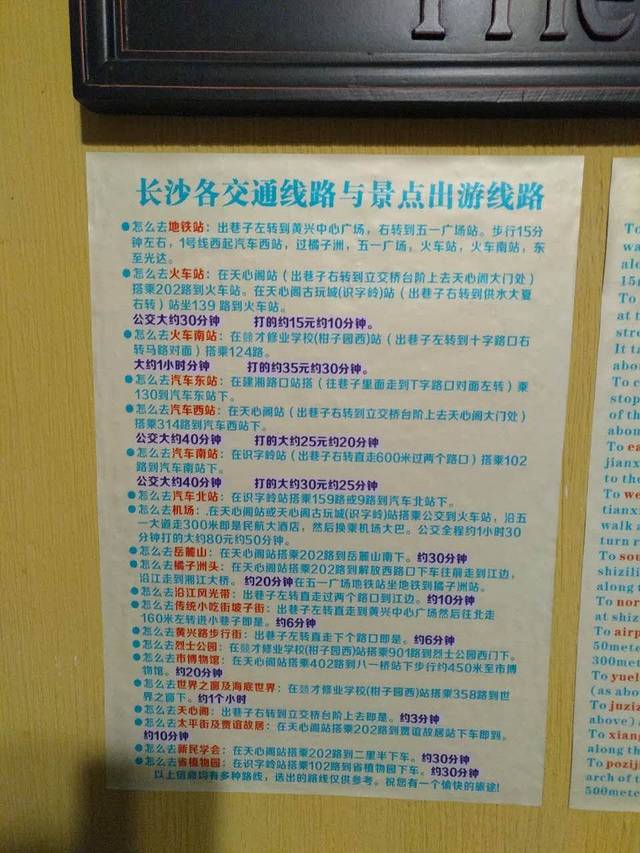 The
长沙各交通线路与景点出游线路
●怎么去地铁站：出巷子左转到黄兴中心广场，右转到五一广场站。步行15分
钟左右，1号线西起汽车西站，过橘子洲，五一广场，火车站，火车南站，东
至光达。
●怎么去火车站：在天心阁站（出巷子右转到立交桥台阶上去天心阁大门处）
搭乘202路到火车站。在天心阁古玩城(识字岭)站（出巷子右转到供水大夏
右转）站坐139 路到火车站。
公交大约30分钟 打的约15元约10分钟。
●怎么去火车南站：在兢才修业学校(柑子园西)站（出巷子左转到十字路口右
转马路对面）搭乘124路。
大约1小时分钟 打的约35元约30分钟。
●怎么去汽车东站：在建湘路口站搭（往巷子里面走到T字路口对面左转）乘
130到汽车东站下。
●怎么去汽车西站：在天心阁站（出巷子右转到立交桥台阶上去天心阁大门处）
搭乘314路到汽车西站下。
公交大约40分钟 打的大约25元约20分钟
●怎么去汽车南站：在识字岭站（出巷子右转直走600米过两个路口）搭乘102
路到汽车南站下。
公交大约40分钟 打的大约30元约25分钟
●怎么去汽车北站：在识字岭站搭乘159路或9路到汽车北站下。
●怎么去机场：.在天心阁站或天心阁古玩城(识字岭)站搭乘公交到火车站，沿五
一大道走300米即是民航大酒店，然后换乘机场大巴。公交全程约1小时30
分钟打的大约80元约50分钟。
●怎么去岳麓山：在天心阁站搭乘202路到岳麓山南下。约30分钟
●怎么去橘子洲头：在天心阁站搭乘202路到解放西路口下车往前走到江边，
沿江走到湘江大桥。约20分钟在五一广场地铁站坐地铁到橘子洲站。
●怎么去沿江风光带：出巷子左转直走过两个路口到江边。约10分钟
●怎么去传统小吃街坡子街：出巷子左转直走到黄兴中心广场然后往北走
160米左转进小巷子即是。约6分钟
●怎么去黄兴路步行街：出巷子左转直走下个路口即是。约6分钟
●怎么去烈士公园：在兢才修业学校(柑子园西)站搭乘901路到烈士公园西门下。
●怎么去市博物馆：在天心阁站搭乘402路到八一桥站下步行约450米至市博
物馆。约20分钟
●怎么去世界之窗及海底世界：在兢才修业学校(柑子园西)站搭乘358路到世
界之窗下。约1个小时
●怎么去天心阁：出巷子右转到立交桥台阶上去即是。约3分钟
●怎么去太平街及贾谊故居：在天心阁站搭乘202路到贾谊故居站下车即是。
约10分钟
●怎么去新民学会：在天心阁站搭乘202路到二里半下车。约30分钟
●怎么去省植物园：在识字岭站搭乘102路到省植物园下车。约30分钟
以上信息均有多种路线，选出的路线仅供参考。祝您有一个愉快的旅途!
To
walk
along
15m
To
at th
stre
It ta
abou
To
stop
of the
abou
To ea
jianx
to the
To we
tianxi
walk u
turn r
To sou
shizili
along t
To nor
at shiz
To airp
50mete
300met
To yuel
(as abo
To juzi
above)
To xiang
along th
To pozij
arch of t
500mete